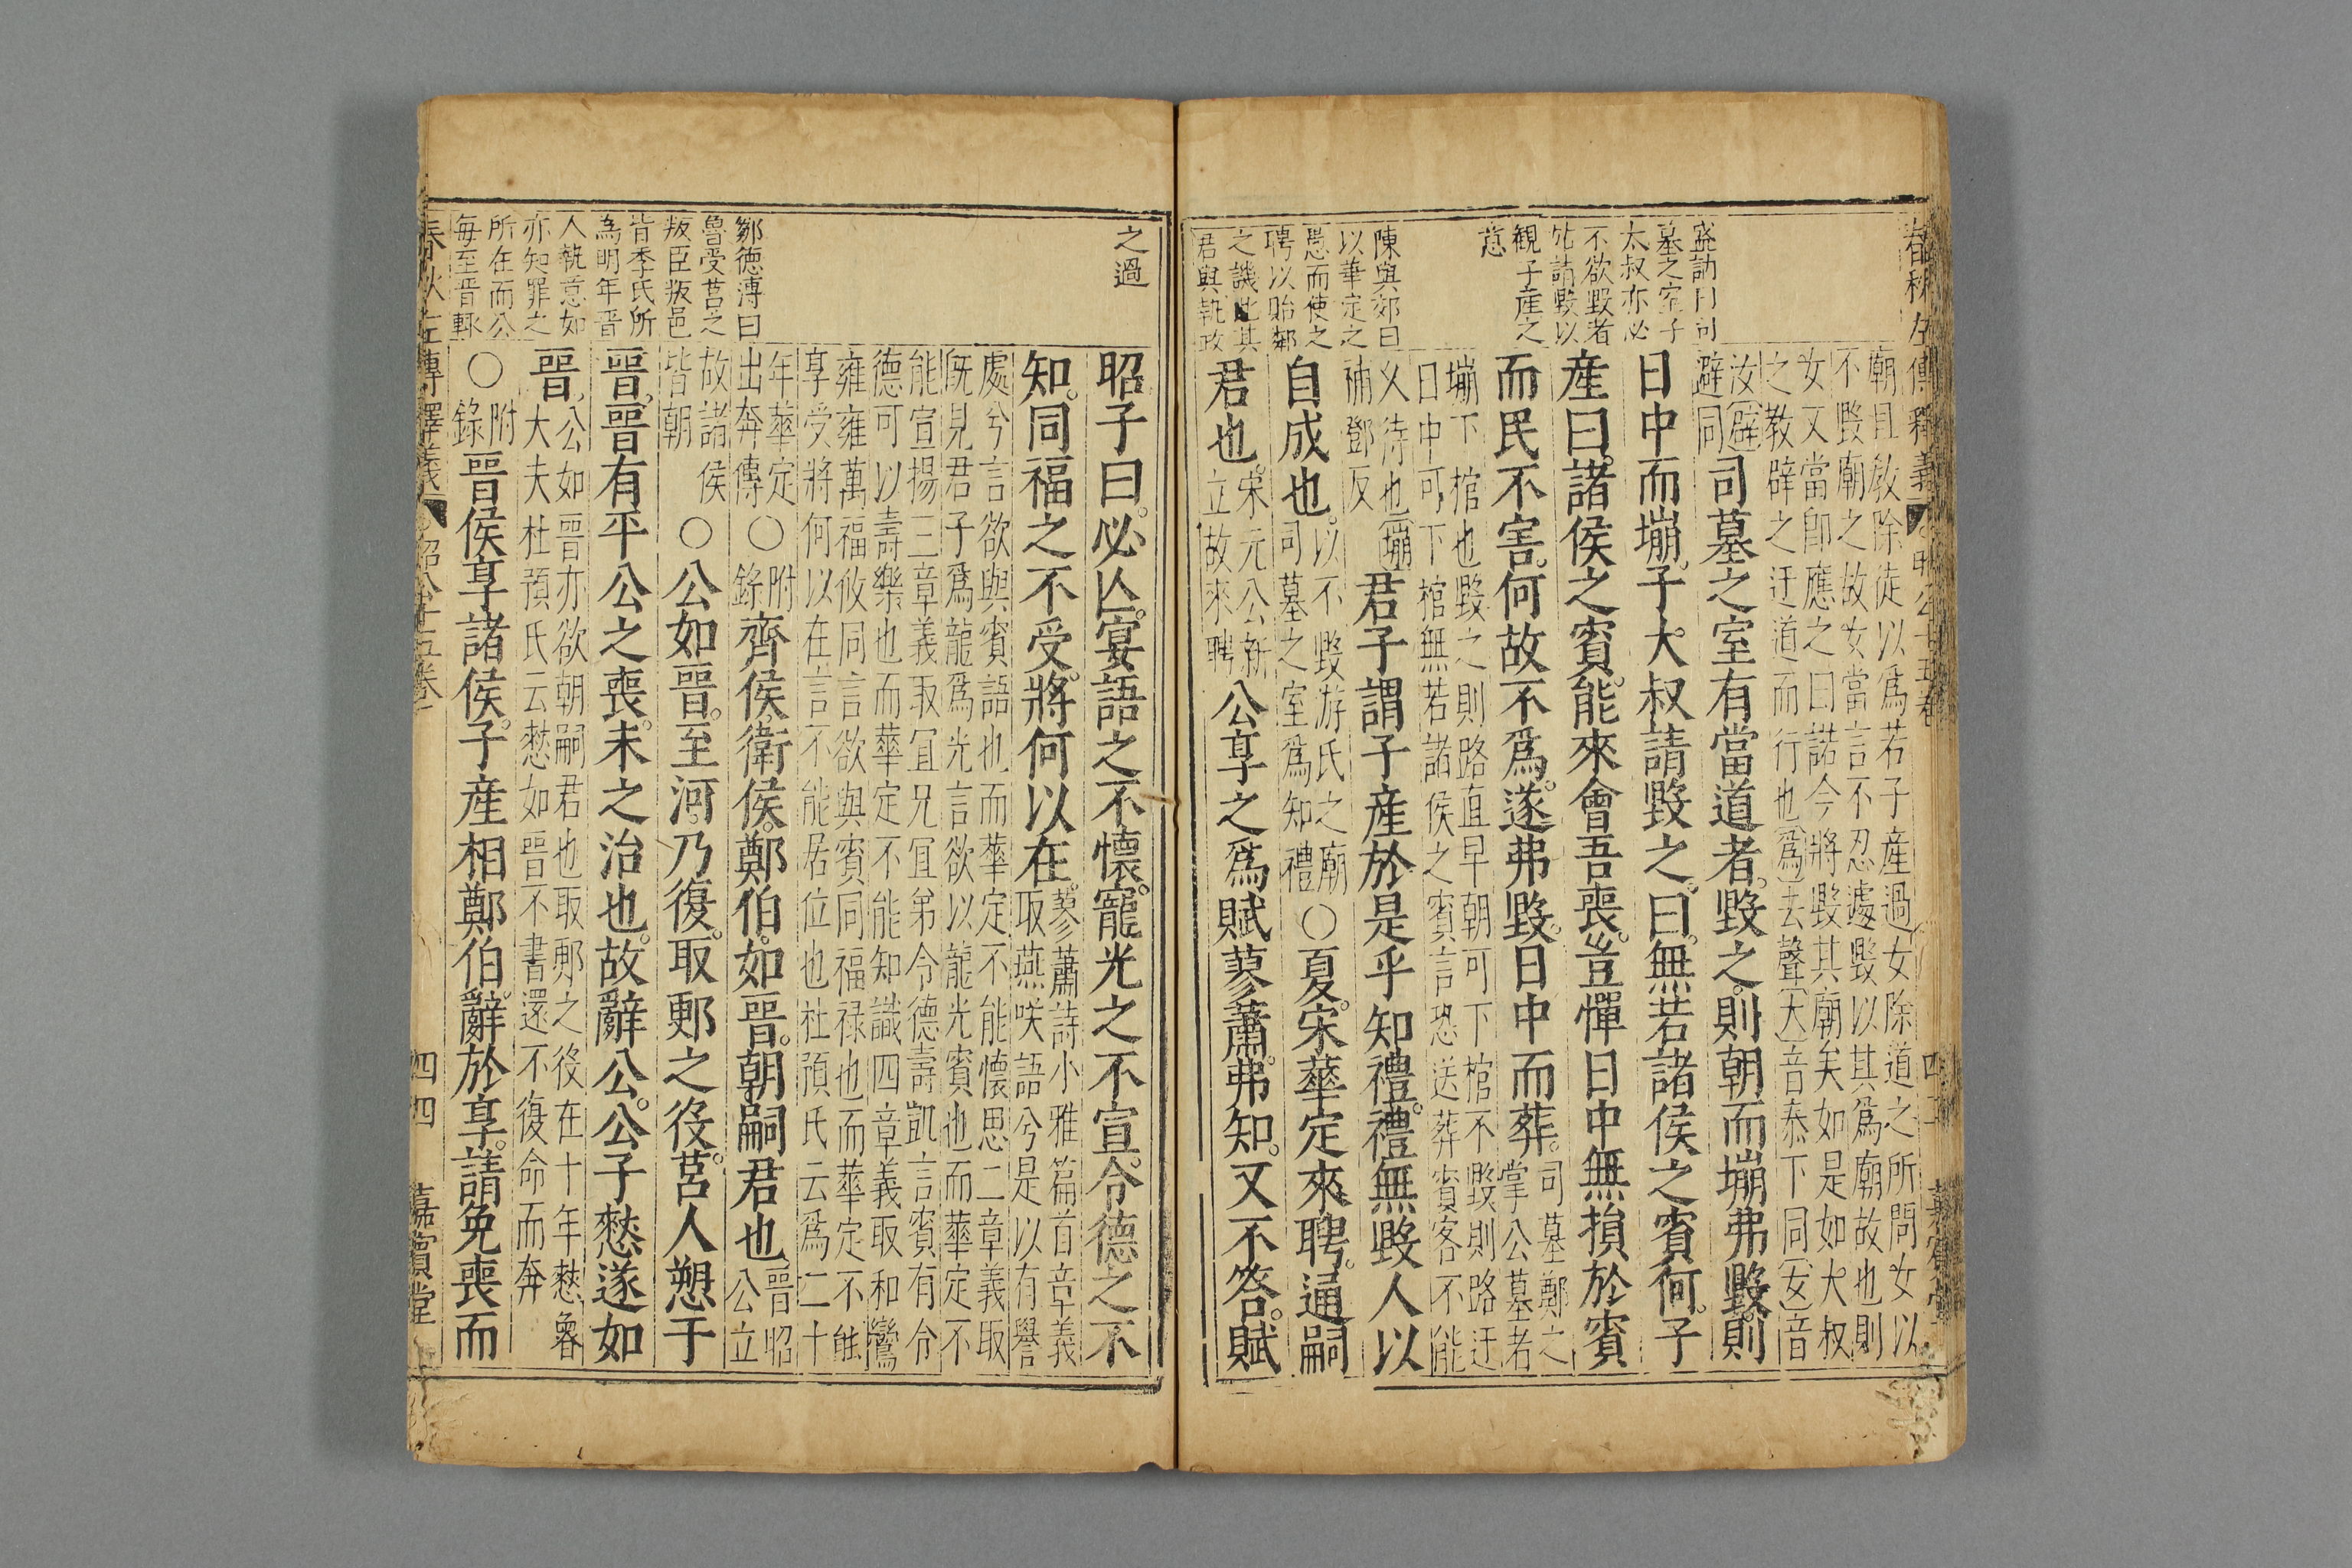 春秋左傳釋義
昭公十五卷
廟且敎除徒以爲若子產過女除道之所問女以
不毀廟之故女當言不忍遽毀以其爲廟故也則
女又當卽應之曰諾今將毀其廟矣如是如大叔
之教辟之迂道而行也爲去聲大音泰下同女音
汝辟
避同
司墓之室有當道者。毀之。則朝而塴弗毀。則
日中而塴。子大叔請毀之。曰。無若諸侯之賓何。子
產曰。諸侯之賓。能來會吾喪。豈憚日中無損於賓
而民不害。何故不爲。遂弗毀。日中而葬。
司墓鄭之
掌公墓者
塴下棺也毀之則路直早朝可下棺不毀則路迂
日中可下棺無若諸侯之賓言恐送葬賓客不能
乂待也塴
補鄧反
君子謂子產於是乎知禮。禮無毀人以
自成也。
以不毀游氏之廟
司墓之室爲知禮
○夏。宋華定來聘。通嗣
君也。
宋元公新
立故來聘
公享之爲賦蓼蕭。弗知。又不答。賦
盛訥曰司
墓之室子
太叔亦必
不欲毀者
始請毀以
觀子產之
意
陳與郊曰
以華定之
愚而使之
聘以貽鄰
之譏此其
君與執政
之過
昭子曰。必亾。宴語之不懷。寵光之不宣。令德之不
知。同福之不受。將何以在。
蓼蕭詩小雅篇首章義
取燕咲語兮是以有譽
處兮言欲與賓語也而華定不能懷思二章義取
旣見君子爲龍爲光言欲以龍光賓也而華定不
能宣揚三章義取冝兄冝弟令德壽凱言賓有令
德可以壽樂也而華定不能知識四章義取和鸞
雍雍萬福攸同言欲與賓同福祿也而華定不能
享受將何以在言不能居位也杜預氏云爲二十
年華定
出奔傳
○
附
錄
齊侯。衛侯。鄭伯。如晋。朝嗣君也
晋昭
公立
故諸侯
皆朝
○公如晋。至河。乃復。取郠之役。莒人愬于
晋。晋有平公之喪。未之治也。故辭公。公子憖遂如
晋。
公如晋亦欲朝嗣君也取郠之役在十年憖魯
大夫杜預氏云憖如晋不書還不復命而奔
○
附
錄
晋侯享諸侯。子產相鄭伯。辭於享。請免喪而
鄒德溥曰
魯受莒之
叛臣叛邑
皆季氏所
為明年晋
人執意如
亦知罪之
所在而公
每至晋輒
春秋左傳釋義
昭公十五卷
四四
嘉賓堂